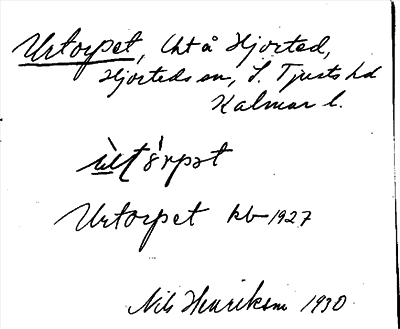 Urtorpet, Cht å Hjorted,
Hjorteds sn, S. Tjusts hd
Kalmar l.
Urtorpet kb 1927
Nils Henrikson 1930